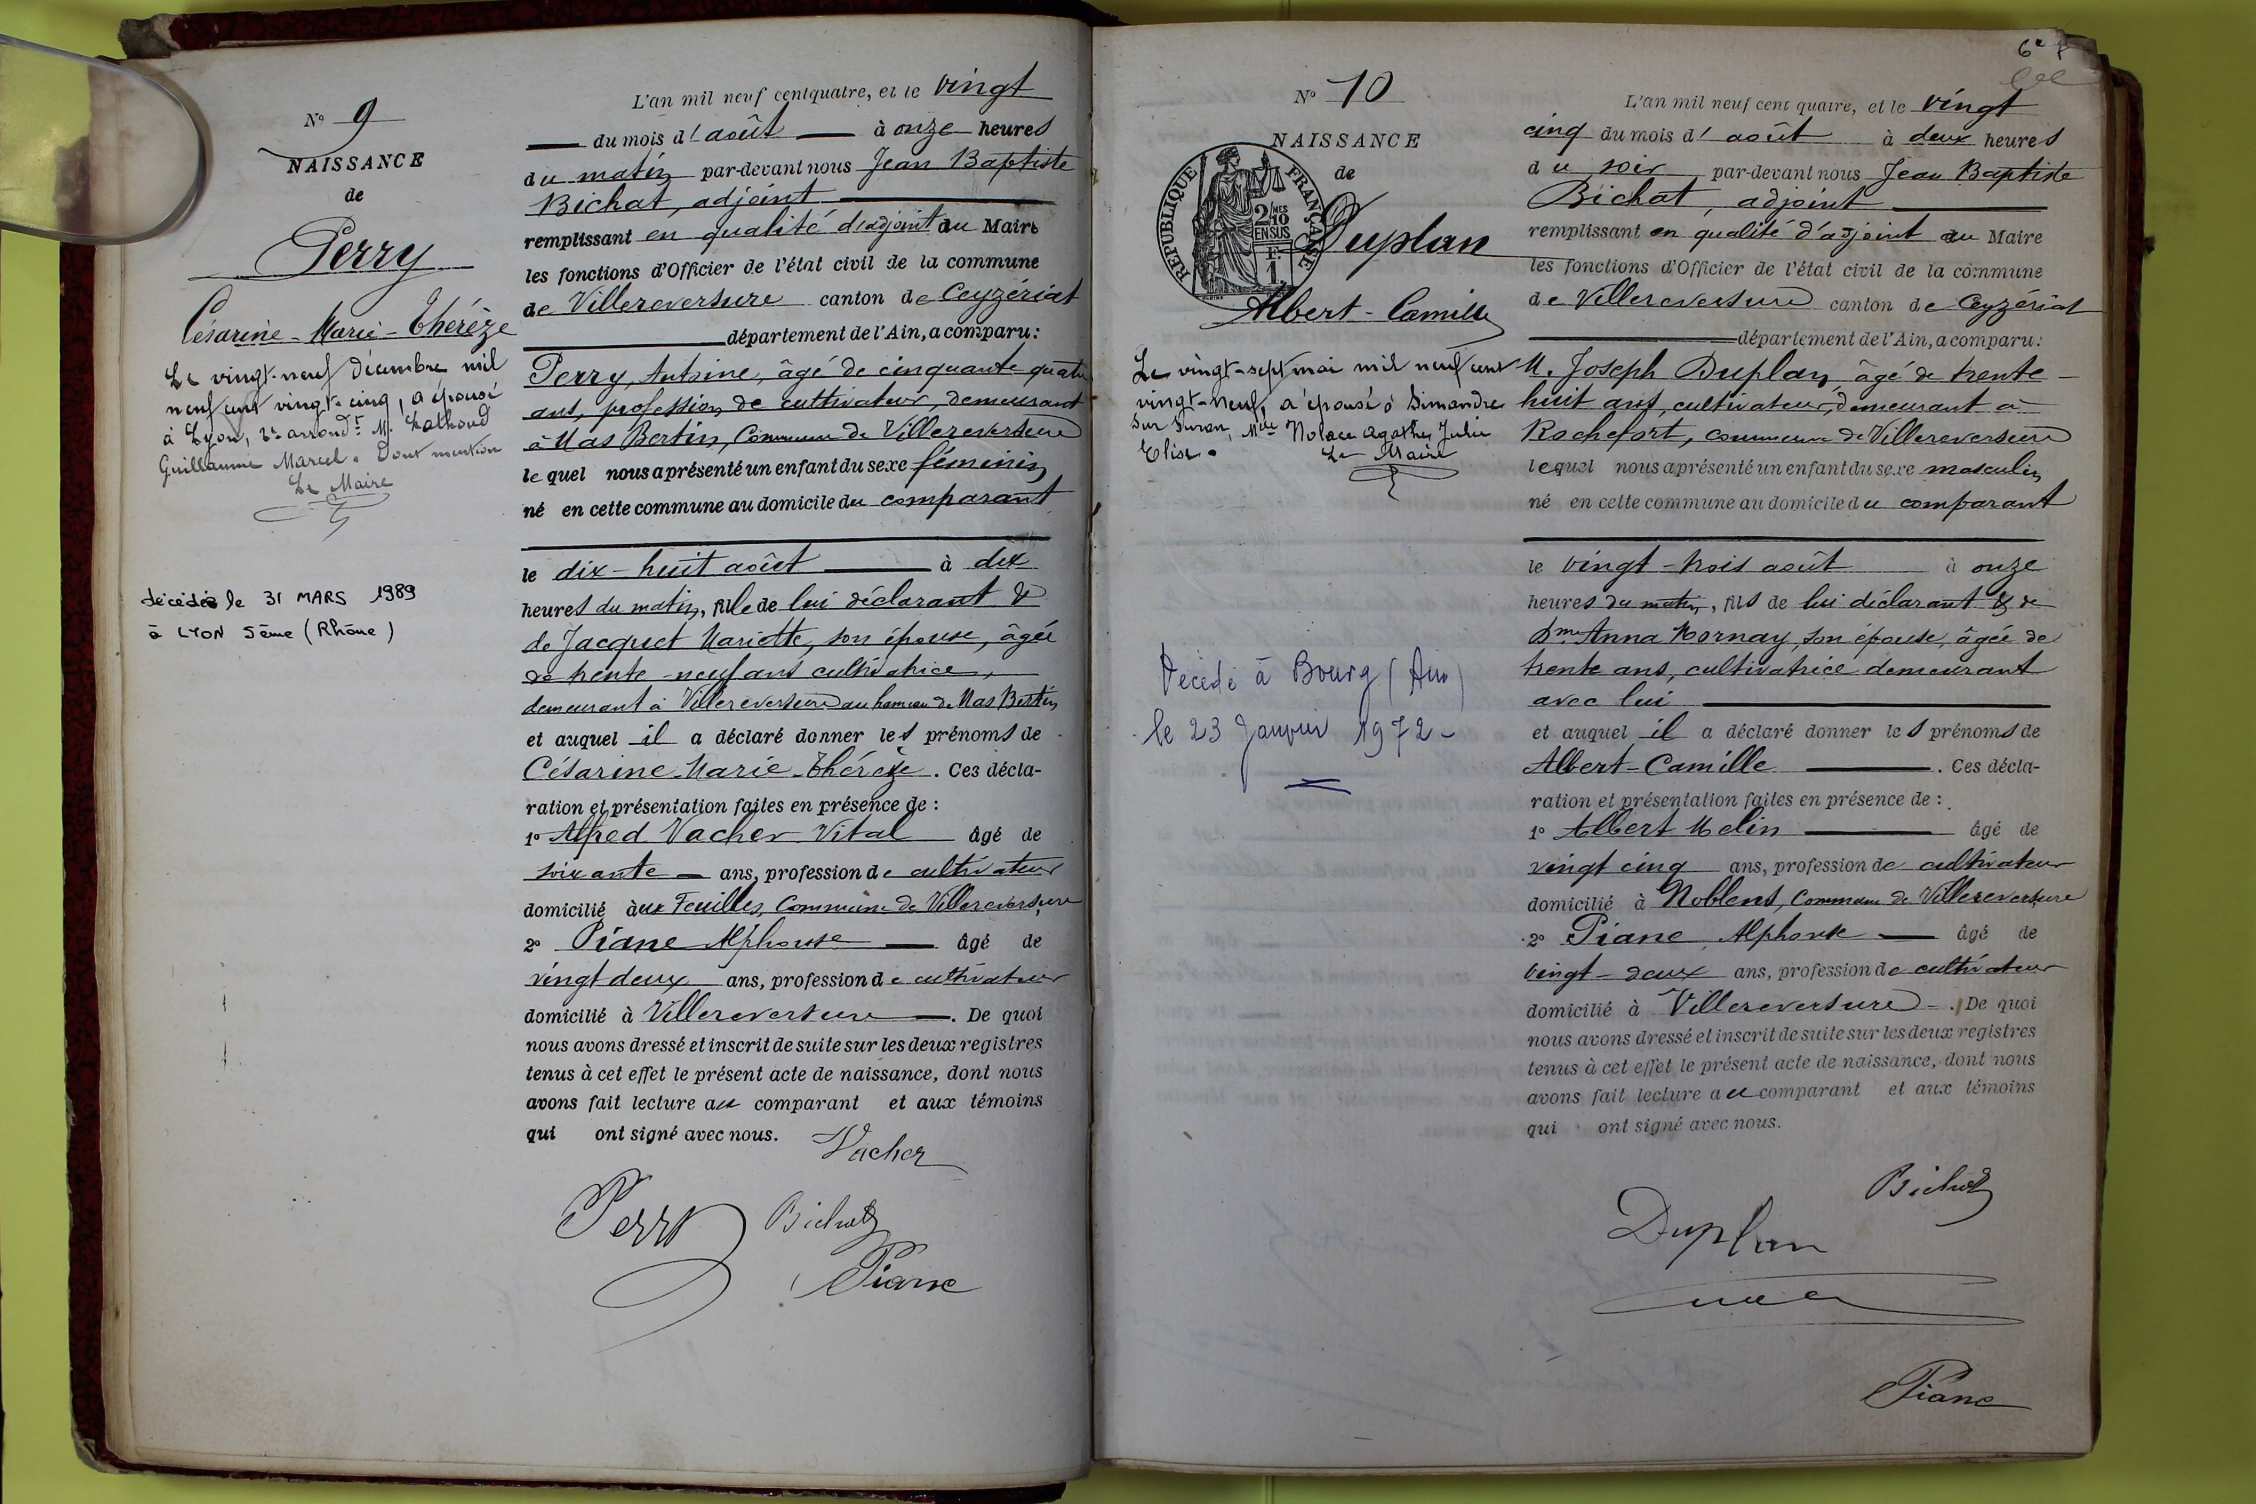 N° 9
NAISSANCE
de
Perry
Césarine-Marie-Thérèze
Le vingt-neuf décembre mil
neuf cent vingt-cinq, a épousé
à Lyon, arrond.t M.
Guillaume Marcel. Dont mention
Le Maire
décédée le 31 MARS 1989
à LYON 5ème (Rhône)
L'an mil neuf cent quatre, et le vingt
du mois d'août à onze heures
du matin par-devant nous Jean Baptiste
Bichat, adjoint
remplissant en qualité d'adjoint au Maire
les fonctions d'Officier de l'état civil de la commune
de Villereversure canton de Ceyzériat
département de l'Ain, a comparu:
Perry, Antoine, âgé de cinquante quatre
ans, profession de cultivateur, demeurant
à Mas Bertin, Commune de Villereversure
lequel nous a présenté un enfant du sexe féminin
né en cette commune au domicile du comparant
le dix-huit août à dix
heures du matin, fille de lui déclarant &
de Jacquet Mariette, son épouse, âgée
de trente-neuf ans cultivatrice,
demeurant à Villereversure au hameau de Mas Bertin
et auquel il a déclaré donner les prénoms de
Césarine-Marie-Thérèze. Ces décla-
ration et présentation faites en présence de :
1° Alfred Vacher Vital âgé de
soixante ans, profession de cultivateur
domicilié aux Feuilles, Commune de Villereversure
2° Piane Alphonse âgé de
vingt deux ans, profession de cultivateur
domicilié à Villereversure. De quoi
nous avons dressé et inscrit de suite sur les deux registres
tenus à cet effet le présent acte de naissance, dont nous
avons fait lecture au comparant et aux témoins
qui ont signé avec nous.
Vacher
Perry Bichat
Piane
6e
N° 10
NAISSANCE
de
REPUBLIQUE FRANÇAISE
2/10MES
EN SUS
F.
1
Duplan
Albert-Camille
Le vingt-sept mai mil neuf cent
vingt-neuf, a épousé à Simandre
sur Suran, Mlle Nolace Agathe Julie
Elise.
Le Maire
Décédé à Bourg (Ain)
le 23 Janvier 1972-
L'an mil neuf cent quatre, et le vingt
cinq du mois d'août à deux heures
du soir par-devant nous Jean Baptiste
Bichat, adjoint
remplissant en qualité d'adjoint au Maire
les fonctions d'Officier de l'état civil de la commune
de Villereversure canton de Ceyzériat
département de l'Ain, a comparu:
M. Joseph Duplan, âgé de trente-
huit ans, cultivateur, demeurant à
Rochefort, commune de Villereversure
lequel nous a présenté un enfant du sexe masculin
né en cette commune au domicile du comparant
le vingt-trois août à onze
heures du matin, fils de lui déclarant & de
Dme Anna Mornay, son épouse, âgée de
trente ans, cultivatrice demeurant
avec lui
et auquel il a déclaré donner les prénoms de
Albert-Camille. Ces décla-
ration et présentation faites en présence de :
1° Albert Melin âgé de
vingt cinq ans, profession de cultivateur
domicilié à Noblens, Commune de Villereversure
2° Piane Alphonse âgé de
vingt-deux ans, profession de cultivateur
domicilié à Villereversure. De quoi
nous avons dressé et inscrit de suite sur les deux registres
tenus à cet effet le présent acte de naissance, dont nous
avons fait lecture au comparant et aux témoins
qui ont signé avec nous.
Bichat
Duplan
Piane